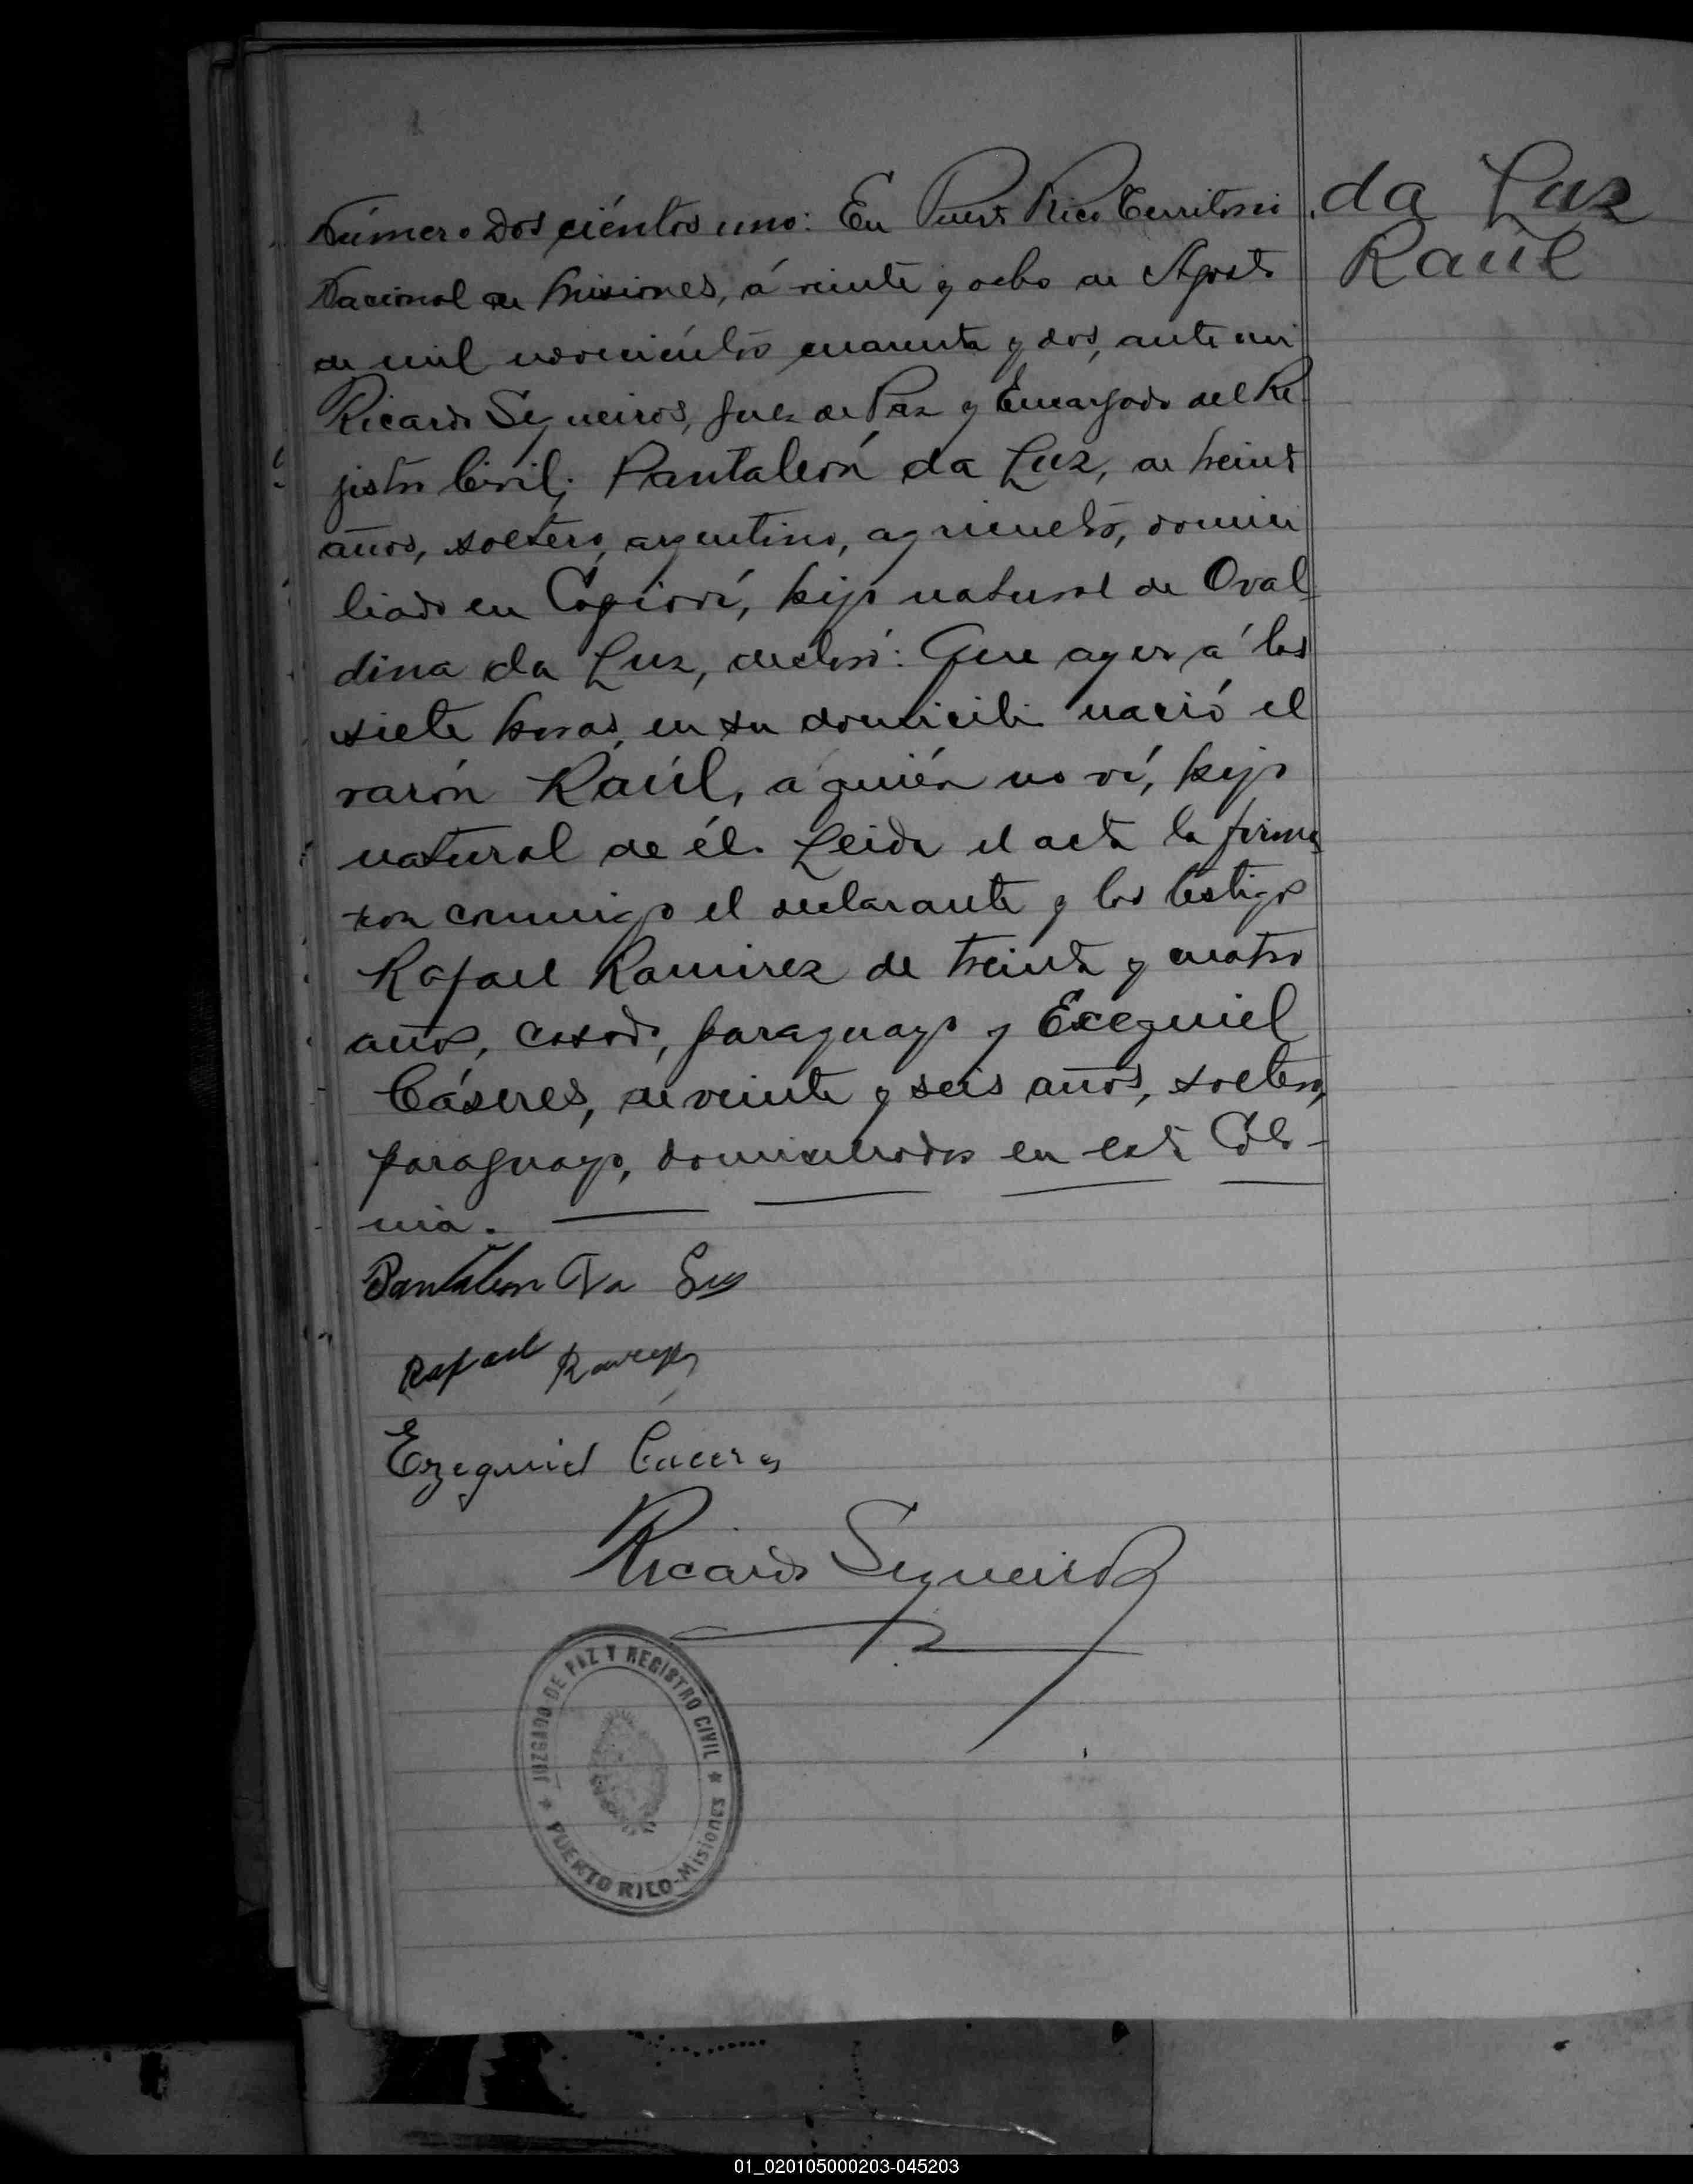 Número Dos ciéntos uno: En Puerto Rico Territorio
Nacional de Misiones, á veinte y ocho de Agosto
de mil novecientos cuarenta y dos, ante mi
Ricardo Sequeiros, Juez de Paz y Encargado del Re
jistro Civil; Pantaleón da Luz, de treinta
años, soltero, argentino, agricultor, domici
liado en Capioví, hijo natural de Oval-
dina da Luz, declaró: Que ayer á las
siete horas, en su domicilio nació el
varón Raúl, a quién no ví, hijo
natural de él. Leida el acta la firma
ron conmigo el declarante y los testigos
Rafael Ramirez de treinta y cuatro
años, casado, paraguayo y Exequiel
Cáseres, de veinte y seis años, soltero,
paraguayo, domiciliados en esta Colo-
nia.
da Luz
Raúl
Pantaleon Da Luz
Rafael Ramirez
Ezequiel Caceres
Ricardo Sequeiros
JUZGADO DE PAZ Y REGISTRO CIVIL
PUERTO RICO-Misiones
01_020105000203-045203